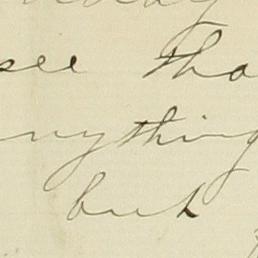 see tha
nything
but